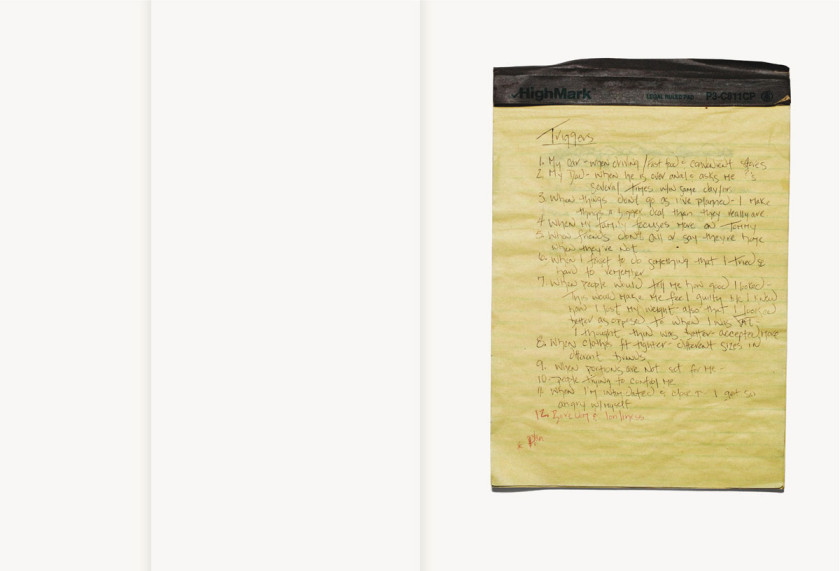 HighMark
LEGAL RULED PAD P2-C811CP
Triggers
1. My car - when driving / not too - convenient stores
2. My - when he is over anal - asks me ?'s
several times w/in same day/or
3. When things don't go as I've planned - I make
things a bigger deal than they really are
4. When my family focuses more on Tommy
5. When friends don't call or say they're home
when they're not
6. When I forget to do something that I tried
hard to remember
7. When people would tell me how good I looked -
This would make me feel guilty b/c I knew
how I lost my weight also that I looked
better as oppose to when I was
I thought thin was better accepted
8. When clothes fit tighter - different sizes in
different brands
9. When portions are not set for me -
10. people trying to control me
11. When I'm I get so
angry w/ myself
12. loneliness